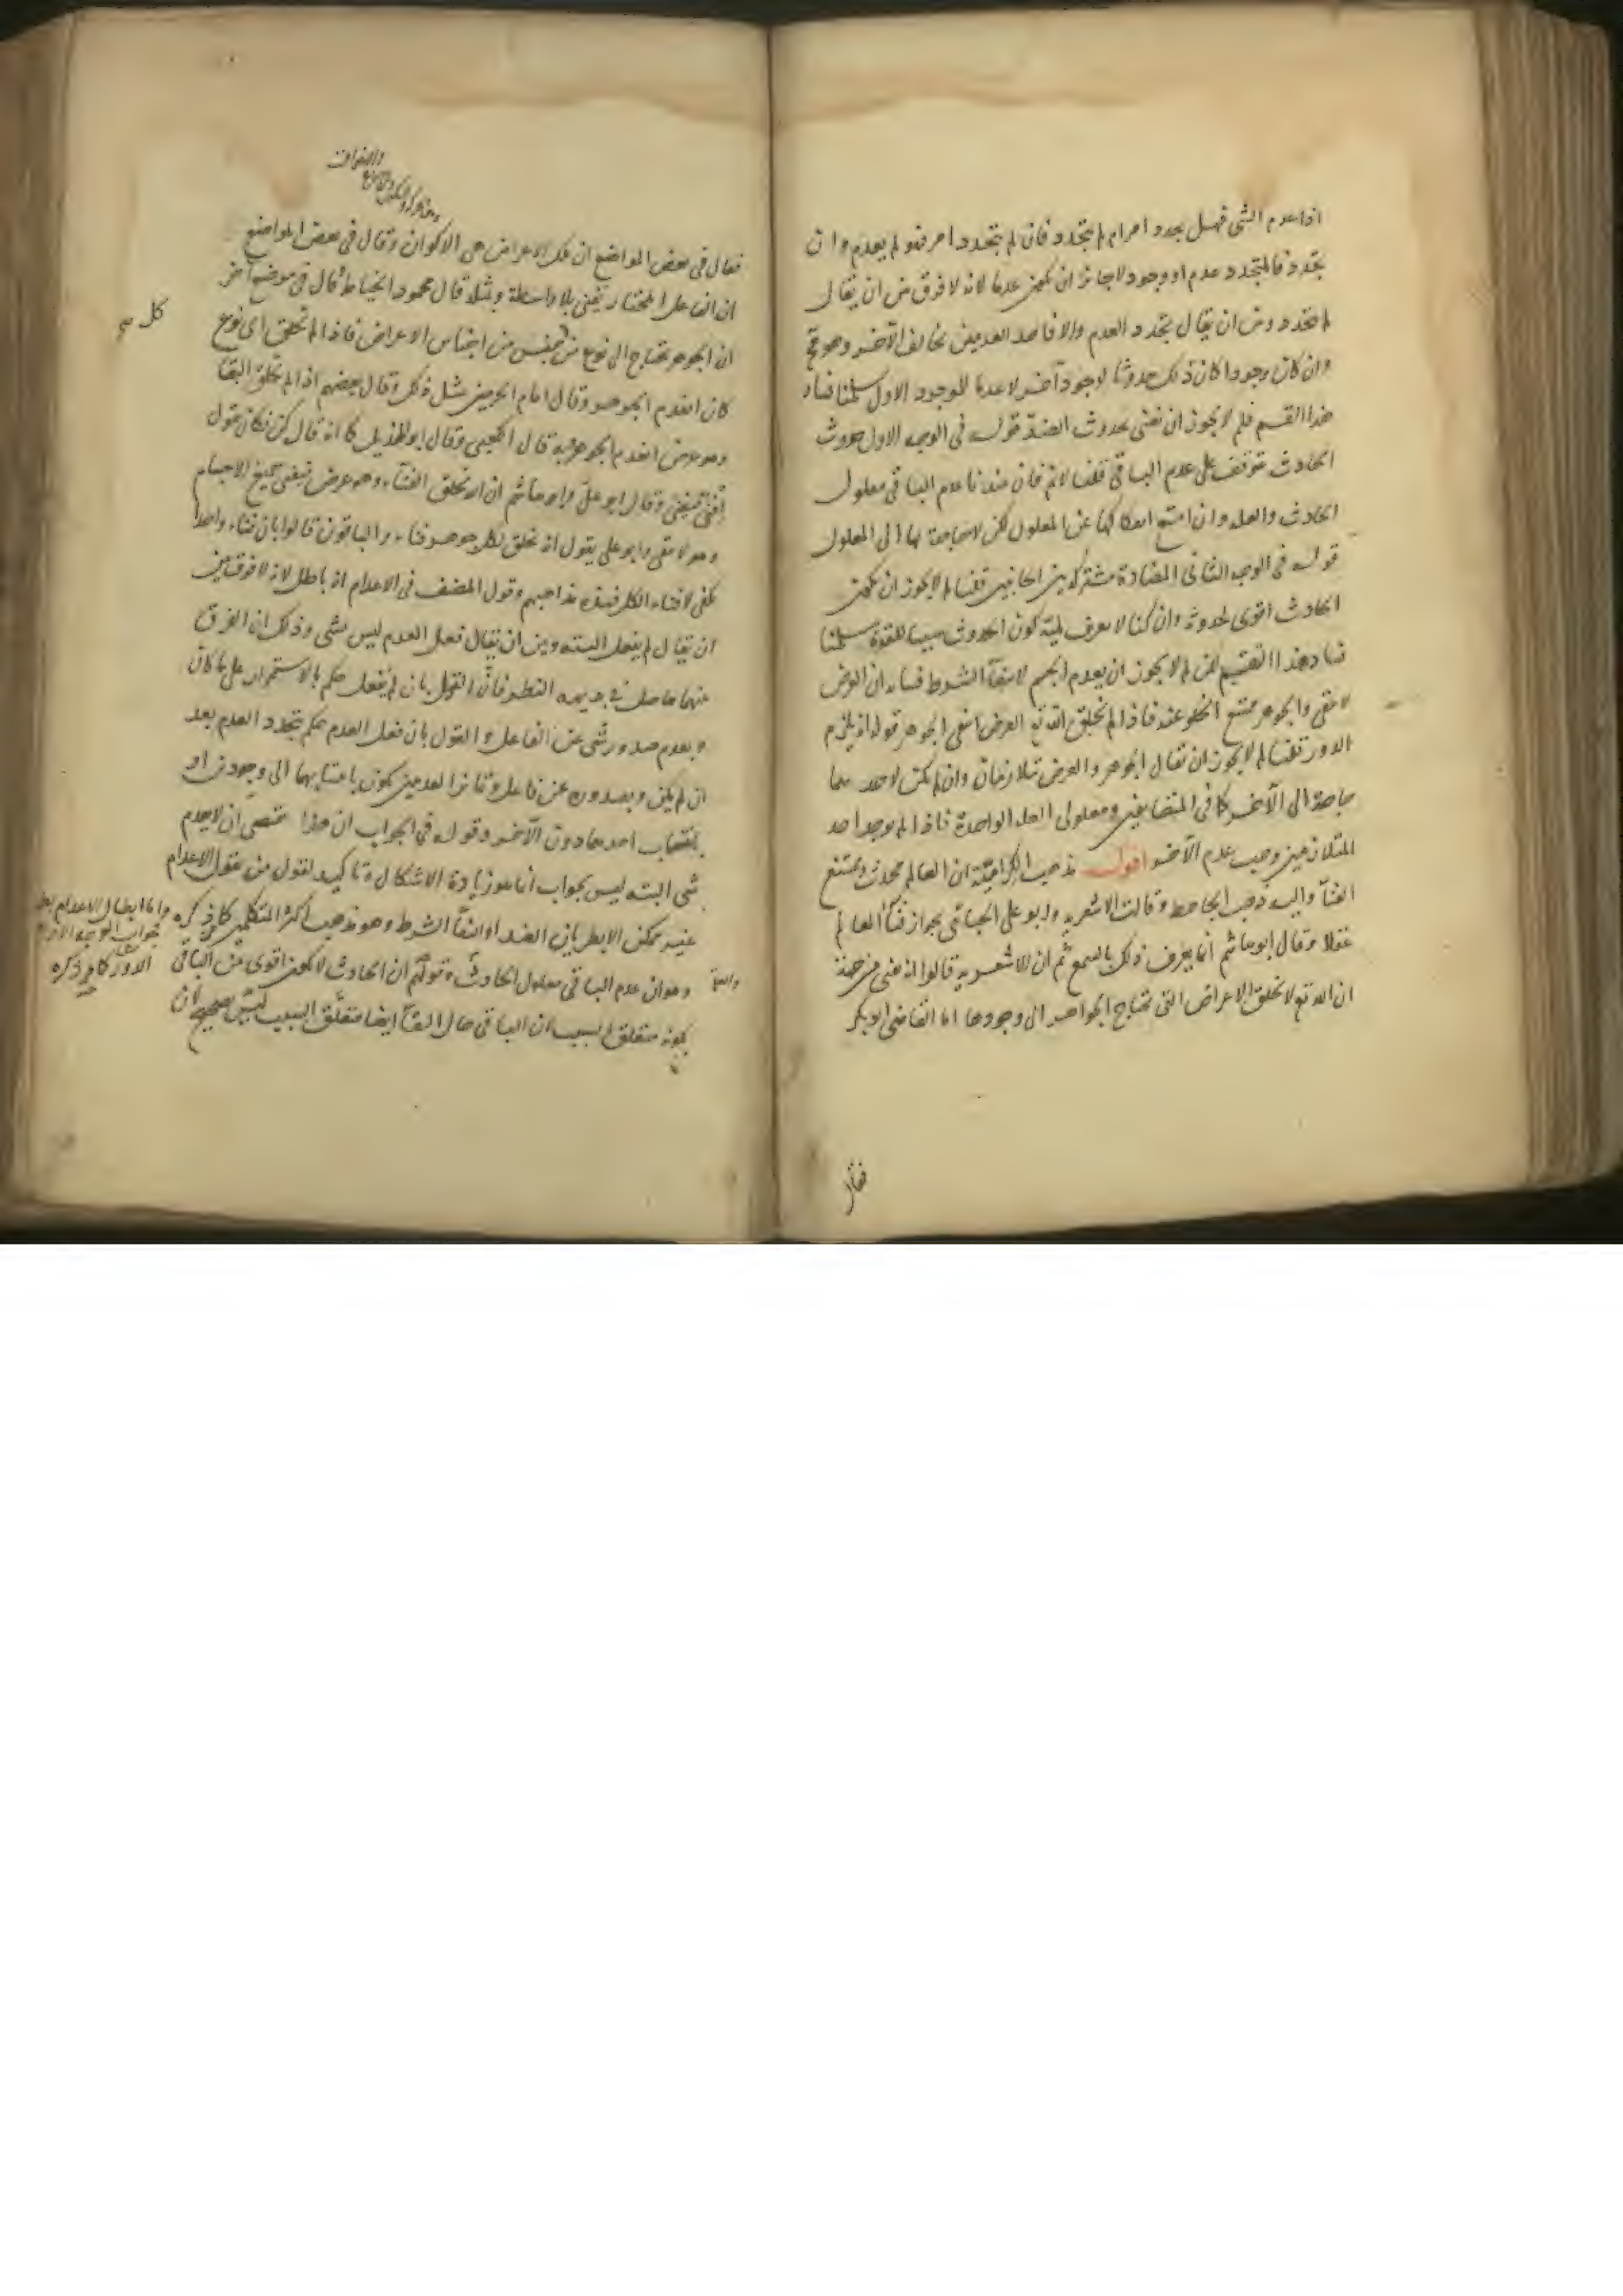 اذا عدم الشى فهل يجدد امر ام لم يتجدد فان لم يتجدد امر فهو لم يعدم وان
تجدد فالمتجدد عدم او وجود لا جائز ان يكون عدما لانه لا فرق بين ان يقال
لم يتجدد وبين ان يقال يتجدد العدم والا فاحد العدمين يخالف الآخر وهو مح
وان كان وجودا كان ذلك حدوثا لوجود آخر لا عدما للوجود الاول سلمنا فساد
هذا القسم فلم لا يجوز ان يفنى بحدوث الضد قوله فى الوجه الاول حدوث
الحادث يتوقف على عدم الباقى قلنا لا نم فان عندنا عدم الباقى معلول
الحادث والعلة وان امتنع انفكاكها عن المعلول لكن لا حاجة بها الى المعلول
قوله فى الوجه الثانى المضادة مشتركة بين الجانبين قلنا لم لا يجوز ان يكون
الحادث اقوى لحدوثه وان كنا لا نعرف لمية كون الحدوث سببا للقوة سلمنا
فساد هذا القسم لكن لم لا يجوز ان يعدم الجسم لانتفآ الشرط فبيانه ان العرض
لا يبقى والجوهر ممتنع الخلو عنه فاذا لم يخلق الله تع العرض انتفى الجوهر قوله انه يلزم
الدور قلنا لم لا يجوز ان يقال الجوهر والعرض متلازمان وان لم يكن لاحدهما
حاجة الى الآخر كما فى المتضايفين ومعلولى العلة الواحدة فاذا لم يوجد احد
المتلازمين وجب عدم الآخر اقول ذهب الكرامية ان العالم محدث وممتنع
الفنآ واليه ذهب الجاحظ وقالت الاشعرية وابو على الجبائى بجواز فنآ العالم
عقلا وقال ابو هاشم انما يعرف ذلك بالسمع ثم ان الاشعرية قالوا انه يفنى من جهة
ان الله تع لا يخلق الاعراض التى تحتاج الجواهر الى وجودها اما القاضى ابو بكر
فقال
فقال فى بعض المواضع ان تلك الاعراض هى الاكوان وقال فى بعض المواضع
ان الفاعل المختار يفنى بلا واسطة وبمثله قال محمود الخياط وقال فى موضع آخر
ان الجوهر يحتاج الى نوع من كل جنس من اجناس الاعراض فاذا لم يخلق اى نوع
كان انعدم الجوهر وقال امام الحرمين بمثل ذلك وقال بعضهم اذا لم يخلق البقآ
وهو عرض انعدم الجوهر وبه قال الكعبى وقال ابو الهذيل كما انه قال كن فكان يقول
افن فيفنى وقال ابو على وابو هاشم ان الله يخلق الفنآ وهو عرض فيفنى جميع الاجسام
وهو لا يبقى وابو على يقول انه يخلق لكل جوهر فناء والباقون قالوا بان فناء واحدا
يكفى لافناء الكل فهذه مذاهبهم وقول المصنف فى الاعدام انه باطل لانه لا فرق بين
ان يقال لم يفعل البتة وبين ان يقال فعل العدم ليس بشى وذلك ان الفرق
بينهما حاصل فى بديهة النظر فان القول بان لم يفعل حكم بالاستمرار على ما كان
وبعدم صدور شى عن الفاعل والقول بان فعل العدم حكم بتجدد العدم بعد
ان لم يكن وبصدوره عن فاعل وتمايز العدمين يكون بانتسابهما الى وجودين او
بانتساب احدهما دون الآخر وقوله فى الجواب ان هذا يقتضى ان لا يعدم
شى البتة ليس بجواب انما هو زيادة الاشكال وتاكيد لقول من يقول الاعدام
غير ممكن الا بطريان الضد او انتفآ الشرط وهو مذهب اكثر المتكلمين كما ذكره
وهو ان عدم الباقى معلول الحادث وقولهم ان الحادث لا يكون اقوى من الباقى
لكونه متعلق السبب لان الباقى حال البقآ ايضا متعلق السبب ليس بصحيح لان
كل صح
واما ابطال الاعدام
جواب الوجه الاول